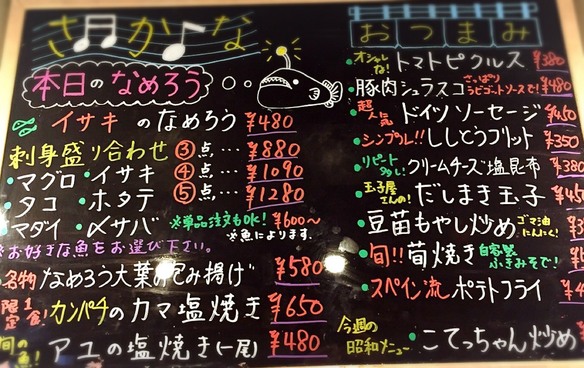 さかな
本日のなめろう
イサキのなめろう ¥480
刺身盛り合わせ ③点… ¥880
・マグロ・イサキ ④点… ¥1090
・タコ・ホタテ ⑤点… ¥1280
・マダイ・〆サバ ※単品注文もOK! ¥600〜
※魚によります。
※お好きな魚をお選び下さい。
名物 なめろう大葉の包み揚げ ¥580
限定1食! カンパチのカマ塩焼き ¥650
旬の魚! アユの塩焼き(一尾) ¥480
おつまみ
・オシャレな! トマトピクルス ¥380
・豚肉シュラスコ さっぱりラビゴットソースで! ¥480
・超人気 ドイツソーセージ ¥450
・シンプル!! ししとうフリット ¥350
・リピート多し! クリームチーズ塩昆布 ¥380
・玉子屋さんの! だしまき玉子 ¥45
・豆苗もやし炒め ゴマ油にんにく!
・旬!! 筍焼き 自家製ふきみそで!
・スペイン流 ポテトフライ
今週の昭和メニュー ・こてっちゃん炒め